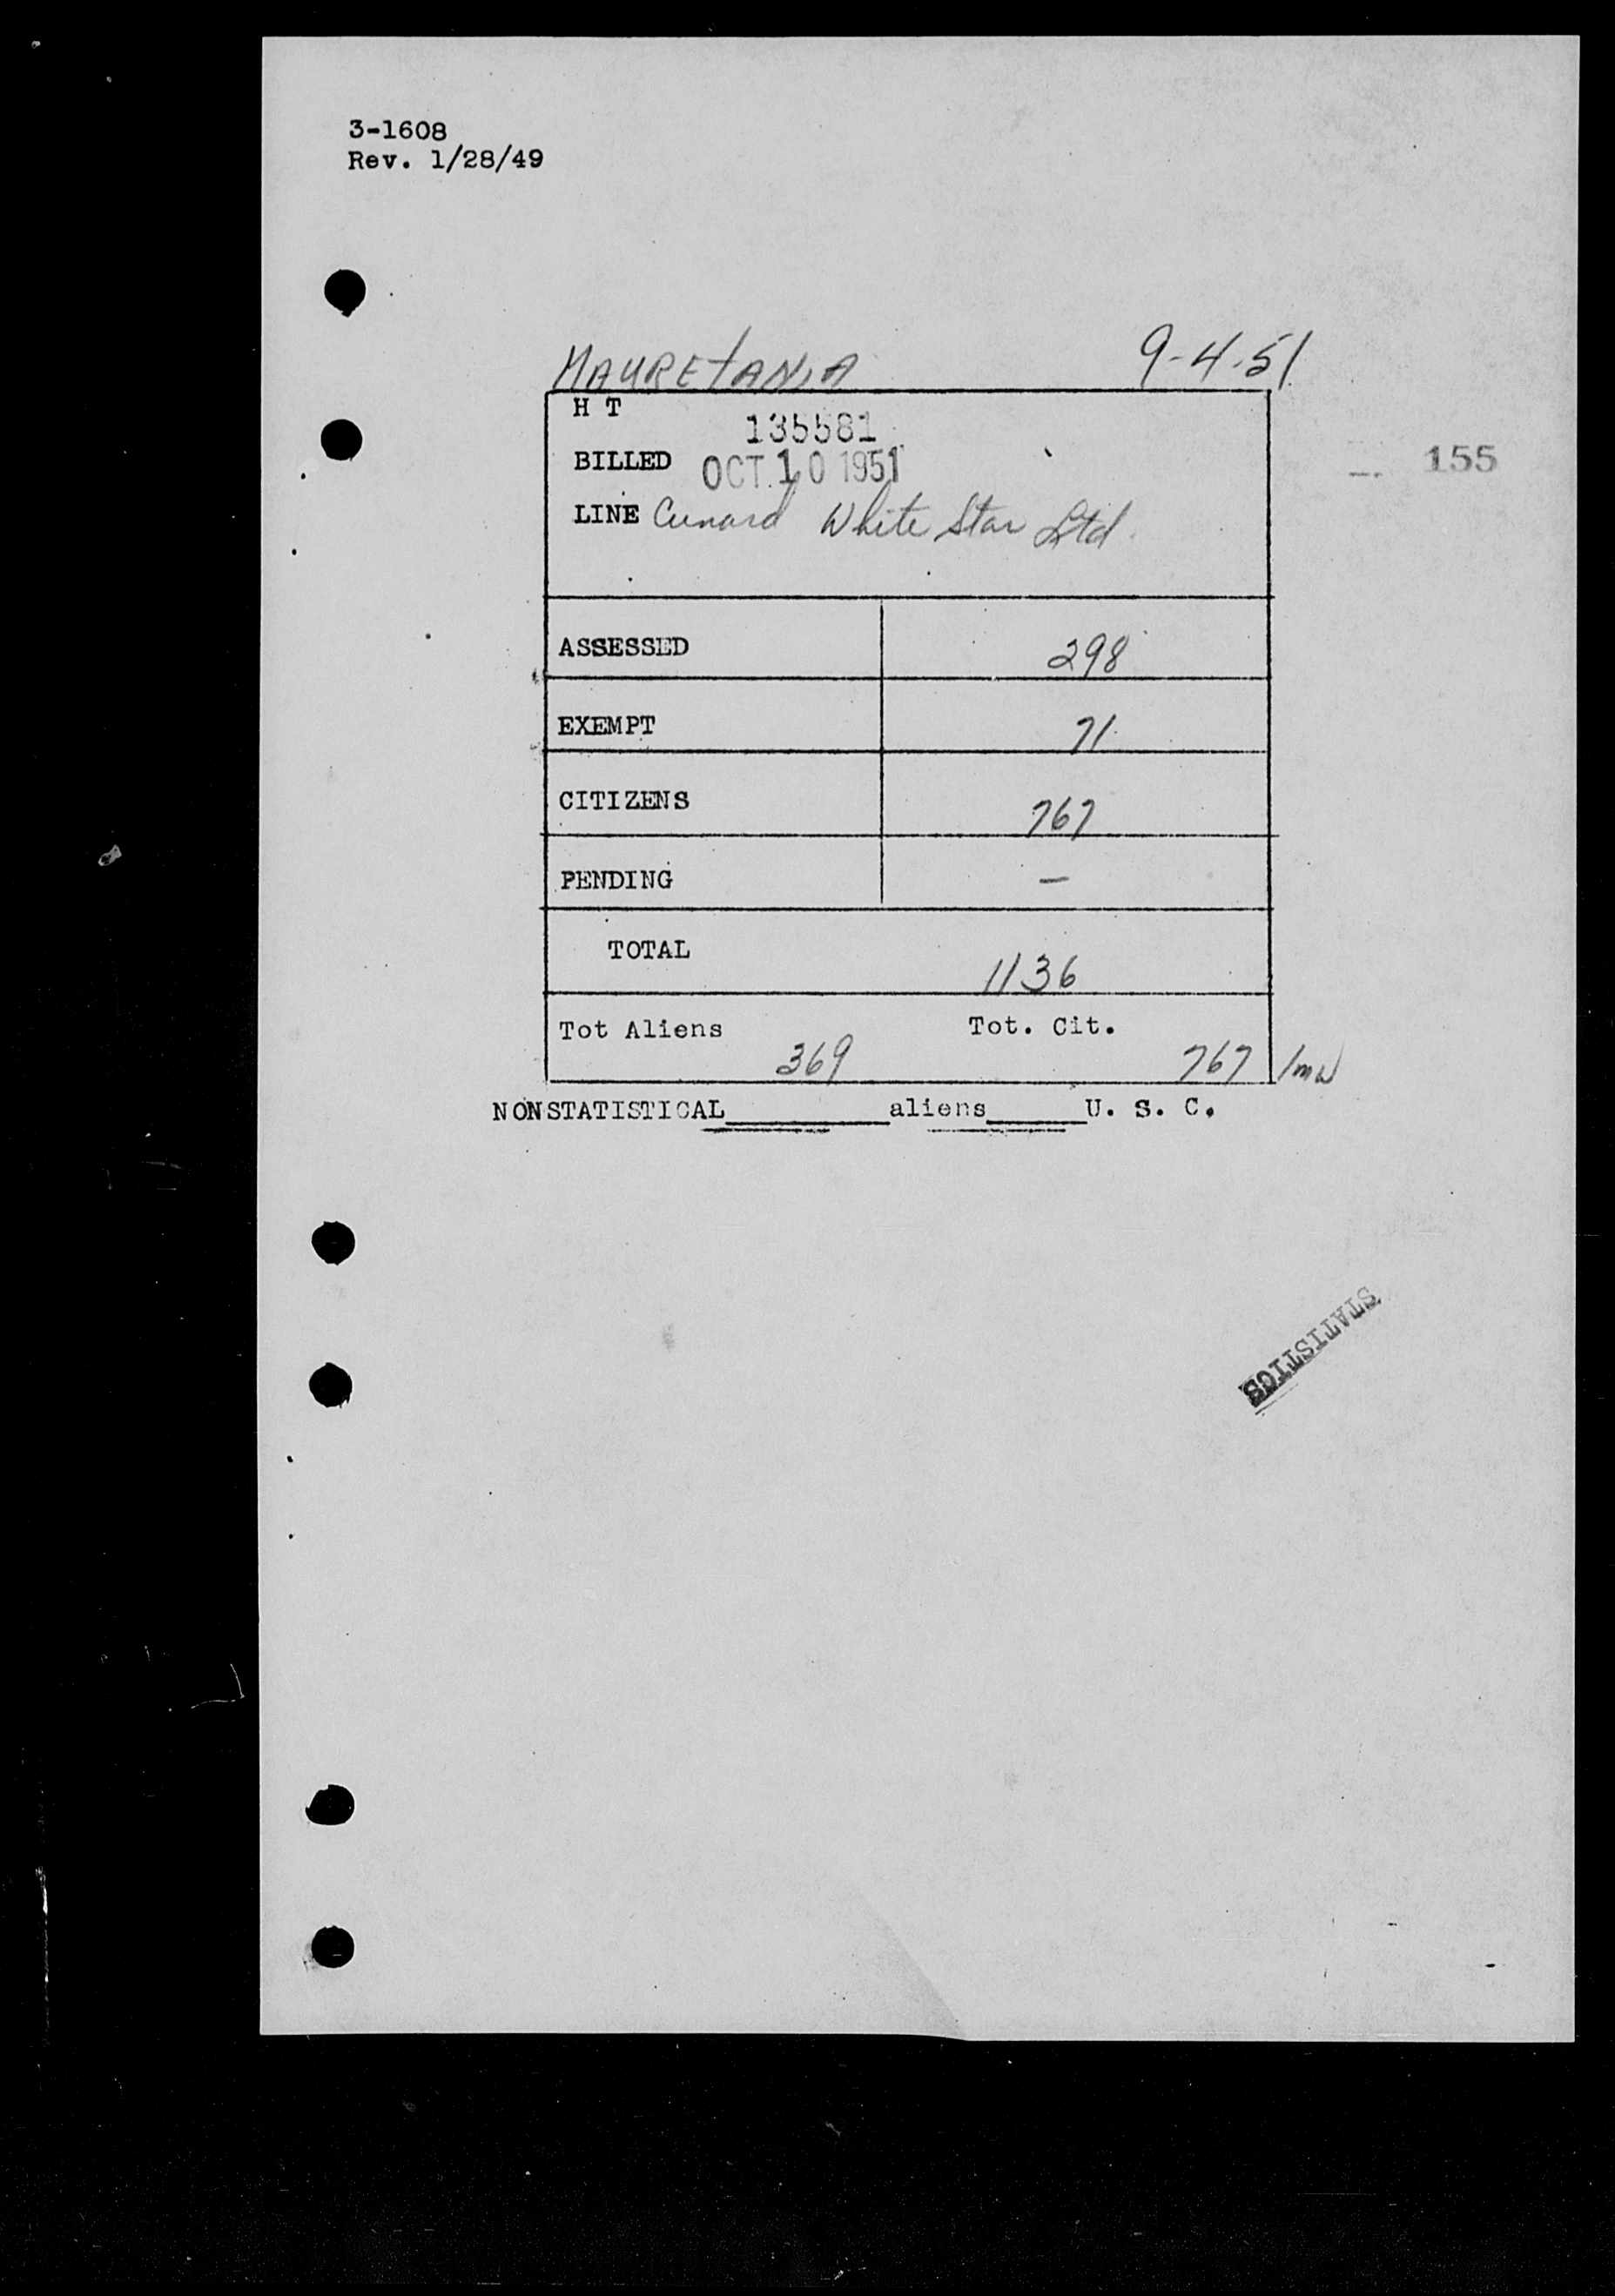 3-1608
Rev. 1/28/49
MAURETANIA 9-4-51
H T
135581
BILLED OCT 10 1951
155
LINE Cunard White Star Ltd.
ASSESSED 298
EXEMPT 71
CITIZENS 767
PENDING —
TOTAL 1136
Tot Aliens 369 Tot. Cit. 767 /mw
NONSTATISTICAL________aliens_____U. S. C.
STATISTICS